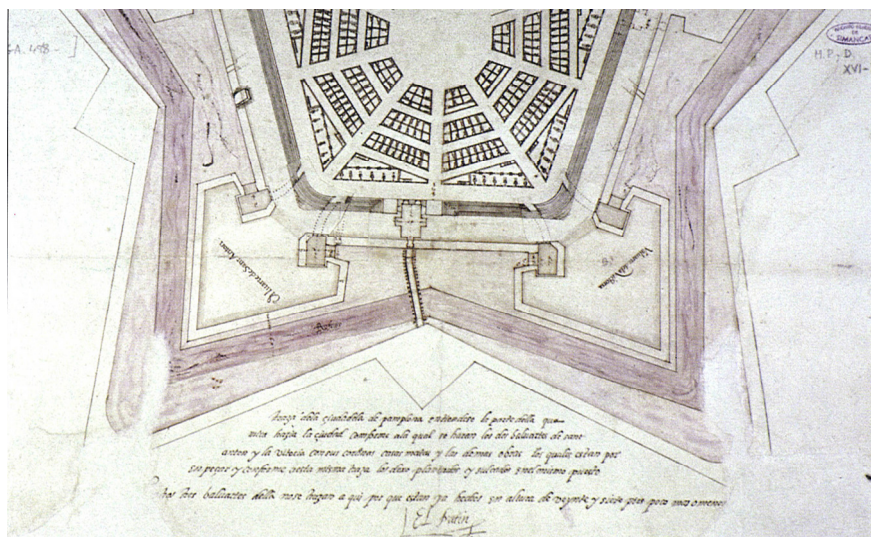 GA. 498-
ARCHIVO
DE
SIMANCAS
M.P.-D.
XVI-
Valuarte de Sant Anton
Valuarte dela Vitoria
foso
traça dela çiudadela de pamplona entiendese la parte della que
mira hazia la çiudad conforme ala qual se hazen los dos baluartes de sant
anton y la vitoria con sus cortinas casas matas y las demas obras los quales estan por
y conforme a esta misma traça los dexo plantados y en el mismo puesto
los tres baluartes della no se traçaron a qui por que estan ya hechos en altura de veynte y siete pies poco mas o menos
El fratin